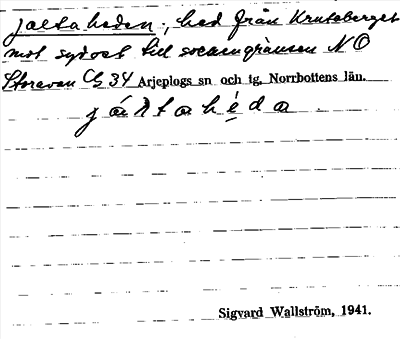 Jaltaheden, hed från Kruteberget
mot sydost till sockengränsen NO
Storavan C 34 Arjeplogs sn och tg, Norrbottens län.
Sigvard Wallström, 1941.